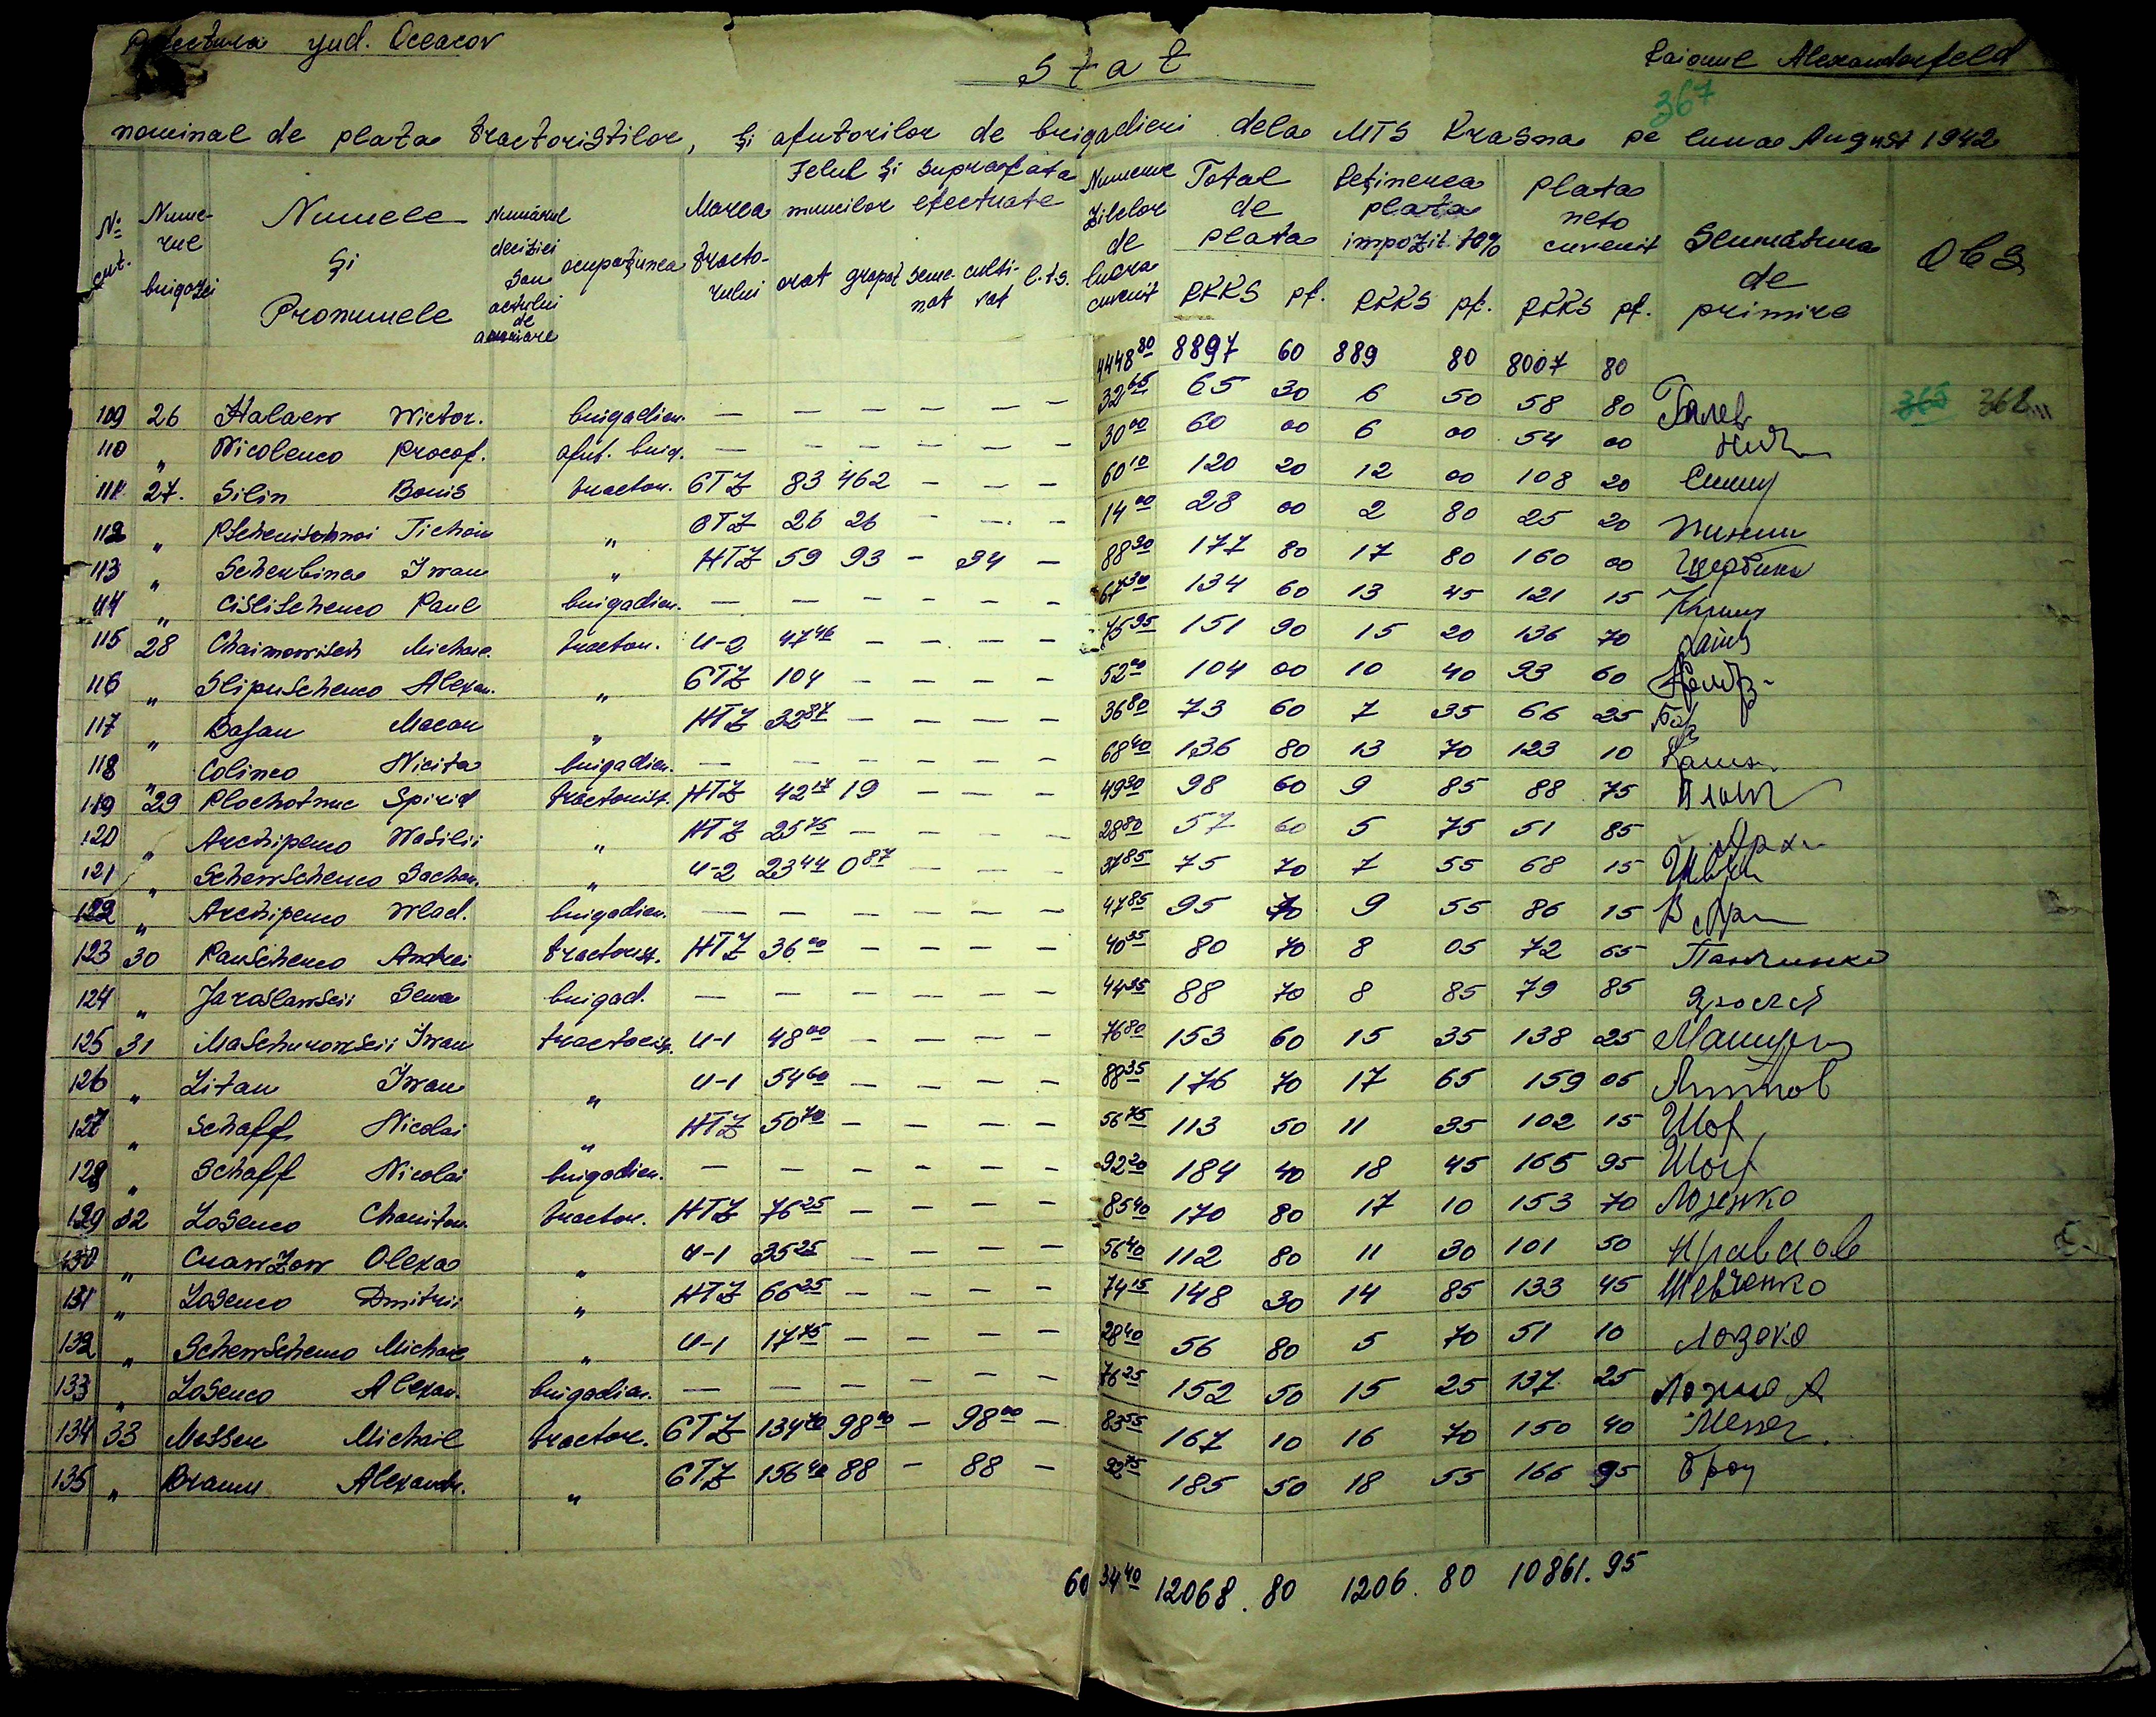 Prefectura jud. Oceacov
Stat
Raionul Alexandorfeld
367
nominal de plata tractoriștilor, și ajutorilor de brigadieri dela MTS Krasna pe luna August 1942
№ crt. Numerul brigazei Numele și Pronumele Numărul deciziei sau actului de ocupațiunea Marca tractorului Felul și suprafata muncilor efectuate arat grapat semenat cultivat l.t.s. Numerul zilelor de lucru cuvenit Total de plata RKKS pf. Reținerea plata impozit 10% RKKS pf. plata neto cuvenit RKKS pf. Semnătura de primire Obs
4448 80 8897 60 889 80 8007 80
109 26 Halaew Wictor. brigadier. — — — — — — 32 65 65 30 6 50 58 80 Галев 365 368
110 " Nicolenco Procof. ajut. brig. — — — — — — 30 00 60 00 6 00 54 00
111 27. Silin Boris tractor. СТZ 83 462 — — — 60 10 120 20 12 00 108 20
112 " Pschenischnoi Tichon " СТZ 26 26 — — — 14 00 28 00 2 80 25 20
113 " Scherbina Iwan " HTZ 59 93 — 34 — 88 90 177 80 17 80 160 00 Щербина
114 " Cislischenco Paul brigadier. — — — — — — 67 30 134 60 13 45 121 15
115 28 Chaimowitsch Michae. tractor. U-2 47 46 — — — — 75 95 151 90 15 20 136 70
116 " Slipuschenco Alexan. " СТZ 104 — — — — 52 00 104 00 10 40 93 60
117 " Bajan Macar " HTZ 32 87 — — — — 36 80 73 60 7 35 66 25
118 " Colinco Nicita brigadier. — — — — — — 68 40 136 80 13 70 123 10
119 29 Plochotnuc Spirid tractorist. HTZ 42 17 19 — — — 49 30 98 60 9 85 88 75
120 " Archipenco Wasilii " HTZ 25 75 — — — — 28 80 57 60 5 75 51 85
121 " Schewschenco Sachar. " U-2 23 44 0 87 — — — 37 85 75 70 7 55 68 15
122 " Archipenco Wlad. brigadier. — — — — — — 47 85 95 70 9 55 86 15
123 30 Panschenco Andrei tractorist. HTZ 36 00 — — — — 40 35 80 70 8 05 72 65 Панченко
124 " Jaroslawscii Sewa brigad. — — — — — — 44 35 88 70 8 85 79 85
125 31 Maschurowscii Iwan tractorist. U-1 48 00 — — — — 76 80 153 60 15 35 138 25
126 " Litau Iwan " U-1 54 60 — — — — 88 35 176 70 17 65 159 05
127 " Schaff Nicolai " HTZ 50 70 — — — — 56 75 113 50 11 35 102 15 Шоф
128 " Schaff Nicolai brigadier. — — — — — — 92 20 184 40 18 45 165 95 Шоф
129 32 Losenco Chariton. tractor. HTZ 76 25 — — — — 85 40 170 80 17 10 153 70 Лозенко
130 " Crawzow Olexa " U-1 35 25 — — — — 56 40 112 80 11 30 101 50
131 " Losenco Dmitrii " HTZ 66 25 — — — — 74 15 148 30 14 85 133 45 Шевченко
132 " Schewschenco Michae " U-1 17 75 — — — — 28 40 56 80 5 70 51 10
133 " Losenco Alexan. brigadier. — — — — — — 76 25 152 50 15 25 137 25
134 33 Messer Michail tractor. СТZ 134 70 98 00 — 98 00 — 83 55 167 10 16 70 150 40
135 " Braun Alexandr. " СТZ 156 40 88 — 88 — 92 75 185 50 18 55 166 95
60 34 40 12068. 80 1206. 80 10861. 95